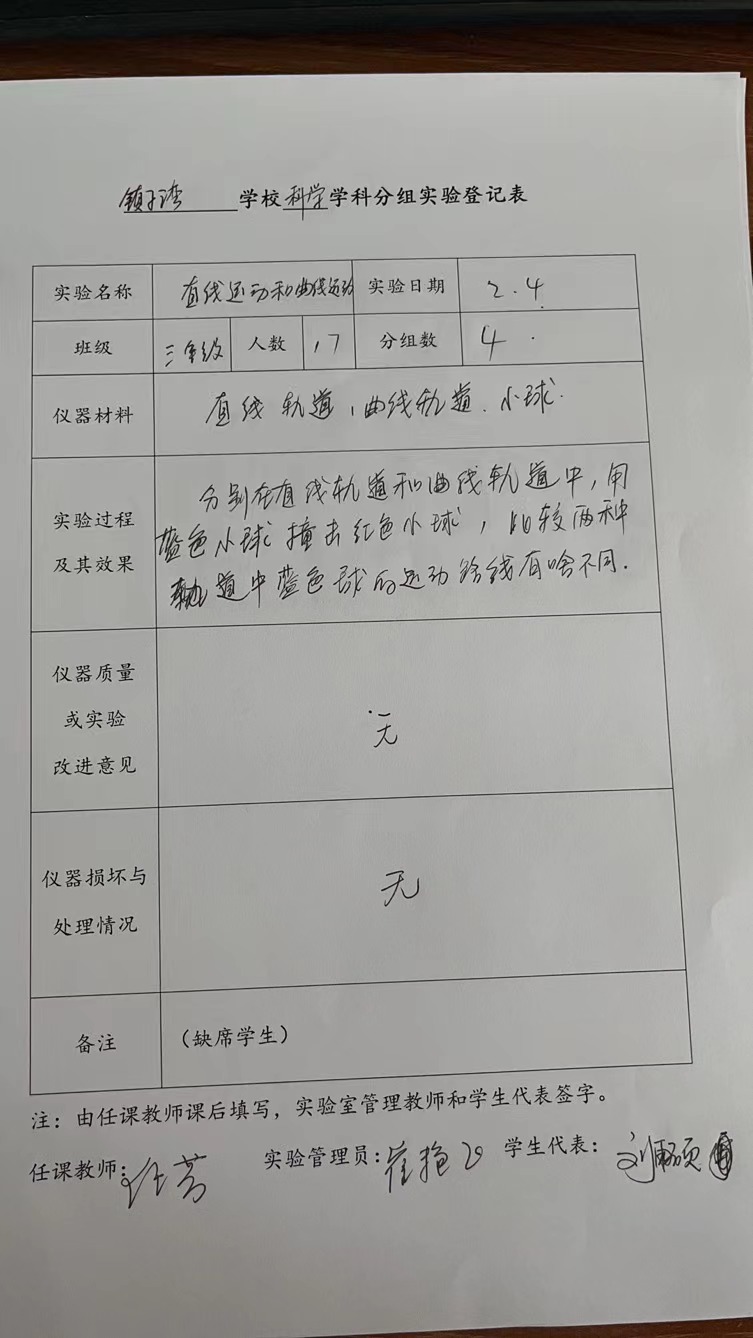 镇子湾 学校 科学 学科分组实验登记表
实验名称 直线运动和曲线运动 实验日期 2.4
班级 三年级 人数 17 分组数 4.
仪器材料 直线轨道,曲线轨道.小球.
实验过程
及其效果
分别在直线轨道和曲线轨道中,用
蓝色小球撞击红色小球,比较两种
轨道中蓝色球的运动路线有啥不同.
仪器质量
或实验
改进意见
无
仪器损坏与
处理情况
无
备注 (缺席学生)
注:由任课教师课后填写,实验室管理教师和学生代表签字。
任课教师: 实验管理员: 学生代表: